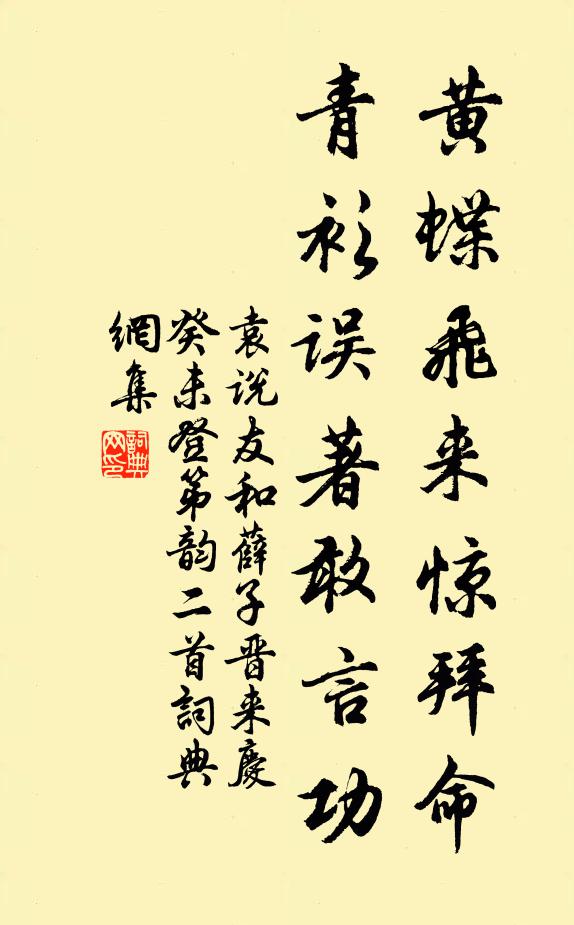 黄蝶飛来惊拜命
青衫误著敢言功
袁说友和薛子晋来慶
癸未登第韵二首詞典
網集
詞典网印